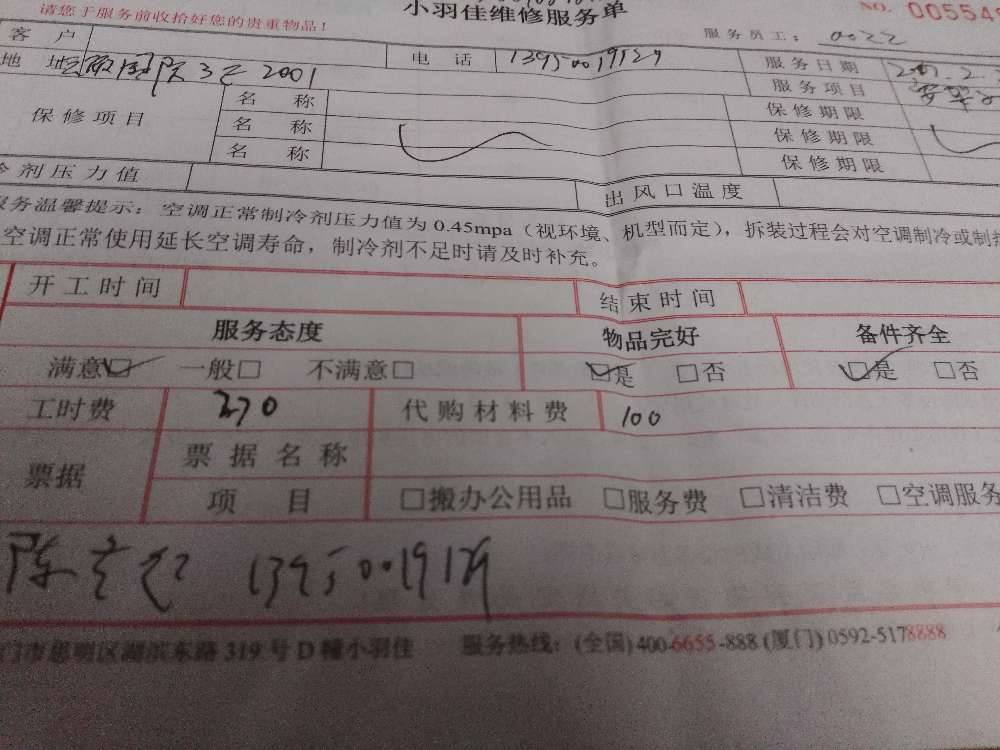 请您于服务前收拾好您的贵重物品！
小羽佳维修服务单
NO. 00554
服务员工： 0022
客户 电话 13950019129 服务日期
地址 3 2001 服务项目
保修项目 名称 保修期限
名称 保修期限
名称 保修期限
剂压力值 出风口温度
服务温馨提示：空调正常制冷剂压力值为 0.45mpa（视环境、机型而定），拆装过程会对空调制冷或制
空调正常使用延长空调寿命，制冷剂不足时请及时补充。
开工时间 结束时间
服务态度 物品完好 备件齐全
满意□ 一般□ 不满意□ □是 □否 □是 □否
工时费 270 代购材料费 100
票据 票据名称
项目 □搬办公用品 □服务费 □清洁费 □空调服务
陈 13950019129
门市思明区湖滨东路 319 号 D 幢小羽佳 服务热线：(全国) 400-6655-888 (厦门) 0592-5178888